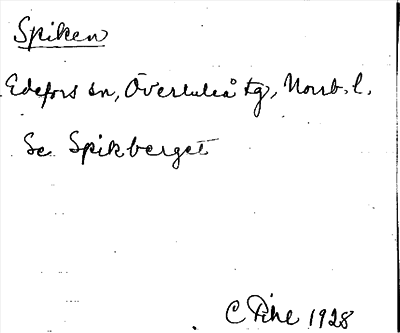 Spiken
Edefors sn, Överluleå tg, Norrb. l.
Se Spikberget
C Pihl 1928